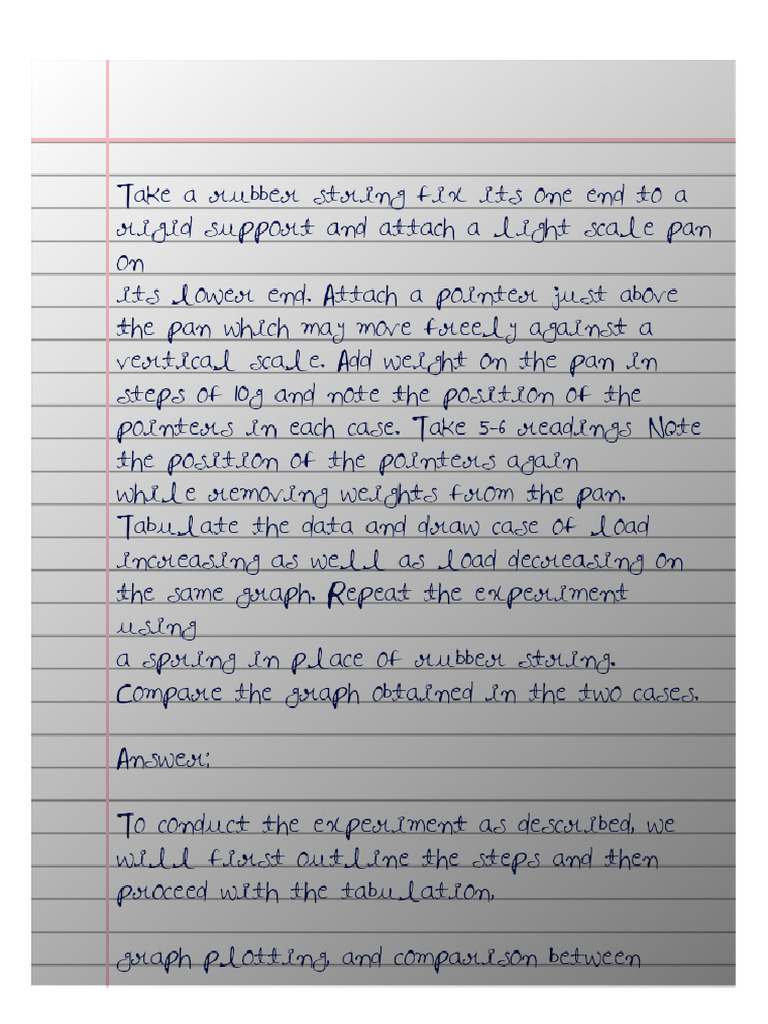 Take a rubber string fix its one end to a
rigid support and attach a light scale pan
on
its lower end. Attach a pointer just above
the pan which may move freely against a
vertical scale. Add weight on the pan in
steps of 10g and note the position of the
pointers in each case. Take 5-6 readings Note
the position of the pointers again
while removing weights from the pan.
Tabulate the data and draw case of load
increasing as well as load decreasing on
the same graph. Repeat the experiment
using
a spring in place of rubber string.
Compare the graph obtained in the two cases.
Answer:
To conduct the experiment as described, we
will first outline the steps and then
proceed with the tabulation,
graph plotting, and comparison between